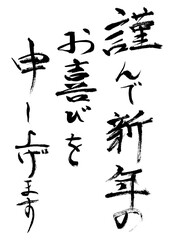 謹んで新年の
お喜びを
申し上げます